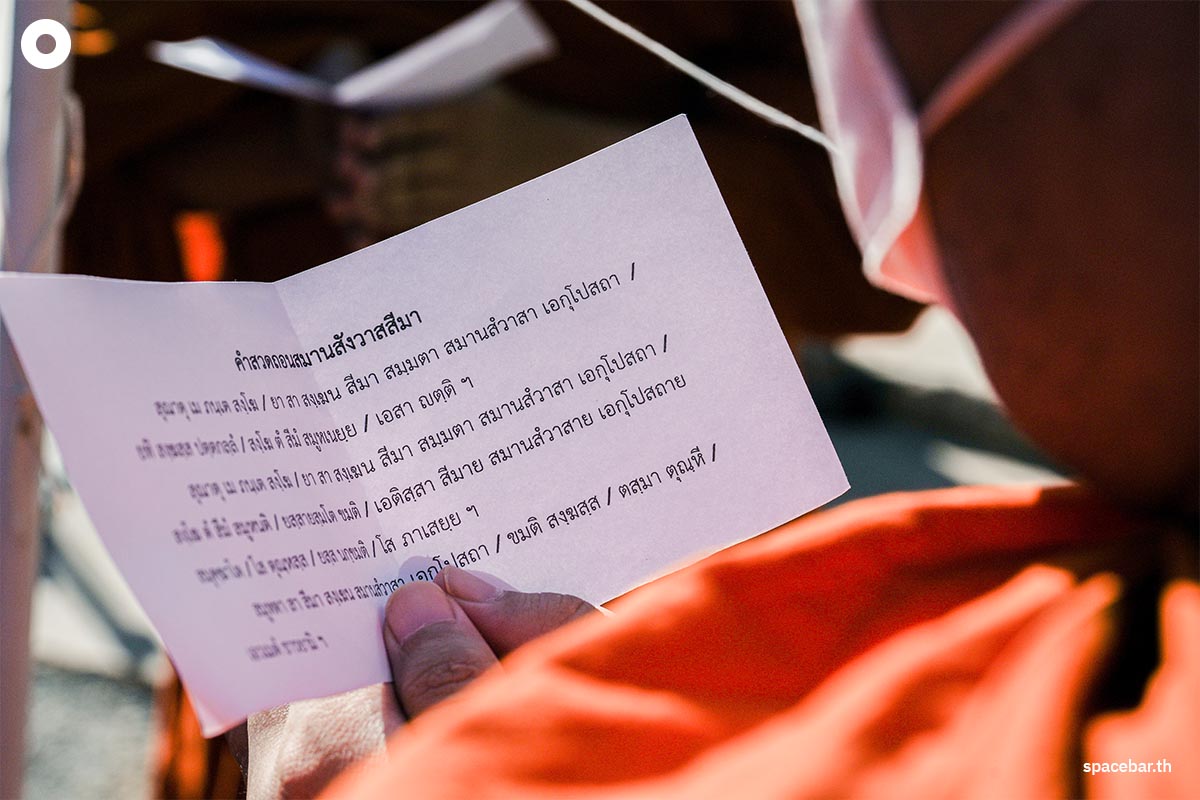 คำสวดถอนสมานสังวาสสีมา
สุณาตุ เม ภนฺเต สงฺโฆ / ยา สา สงฺเฆน สีมา สมฺมตา สมานสํวาสา เอกุโปสถา /
ยทิ สงฺฆสฺส ปตฺตกลฺลํ / สงฺโฆ ตํ สีมํ สมูหเนยฺย / เอสา ญตฺติ ฯ
สุณาตุ เม ภนฺเต สงฺโฆ / ยา สา สงฺเฆน สีมา สมฺมตา สมานสํวาสา เอกุโปสถา /
สงฺโฆ ตํ สีมํ สมูหนติ / ยสฺสายสฺมโต ขมติ / เอติสฺสา สีมาย สมานสํวาสาย เอกุโปสถาย
สมุคฺฆาโต / โส ตุณฺหสฺส / ยสฺส นกฺขมติ / โส ภาเสยฺย ฯ
สมูหตา สา สีมา สงฺเฆน สมานสํวาสา เอกุโปสถา / ขมติ สงฺฆสฺส / ตสฺมา ตุณฺหี /
เอวเมตํ ธารยามิ ฯ
spacebar.th